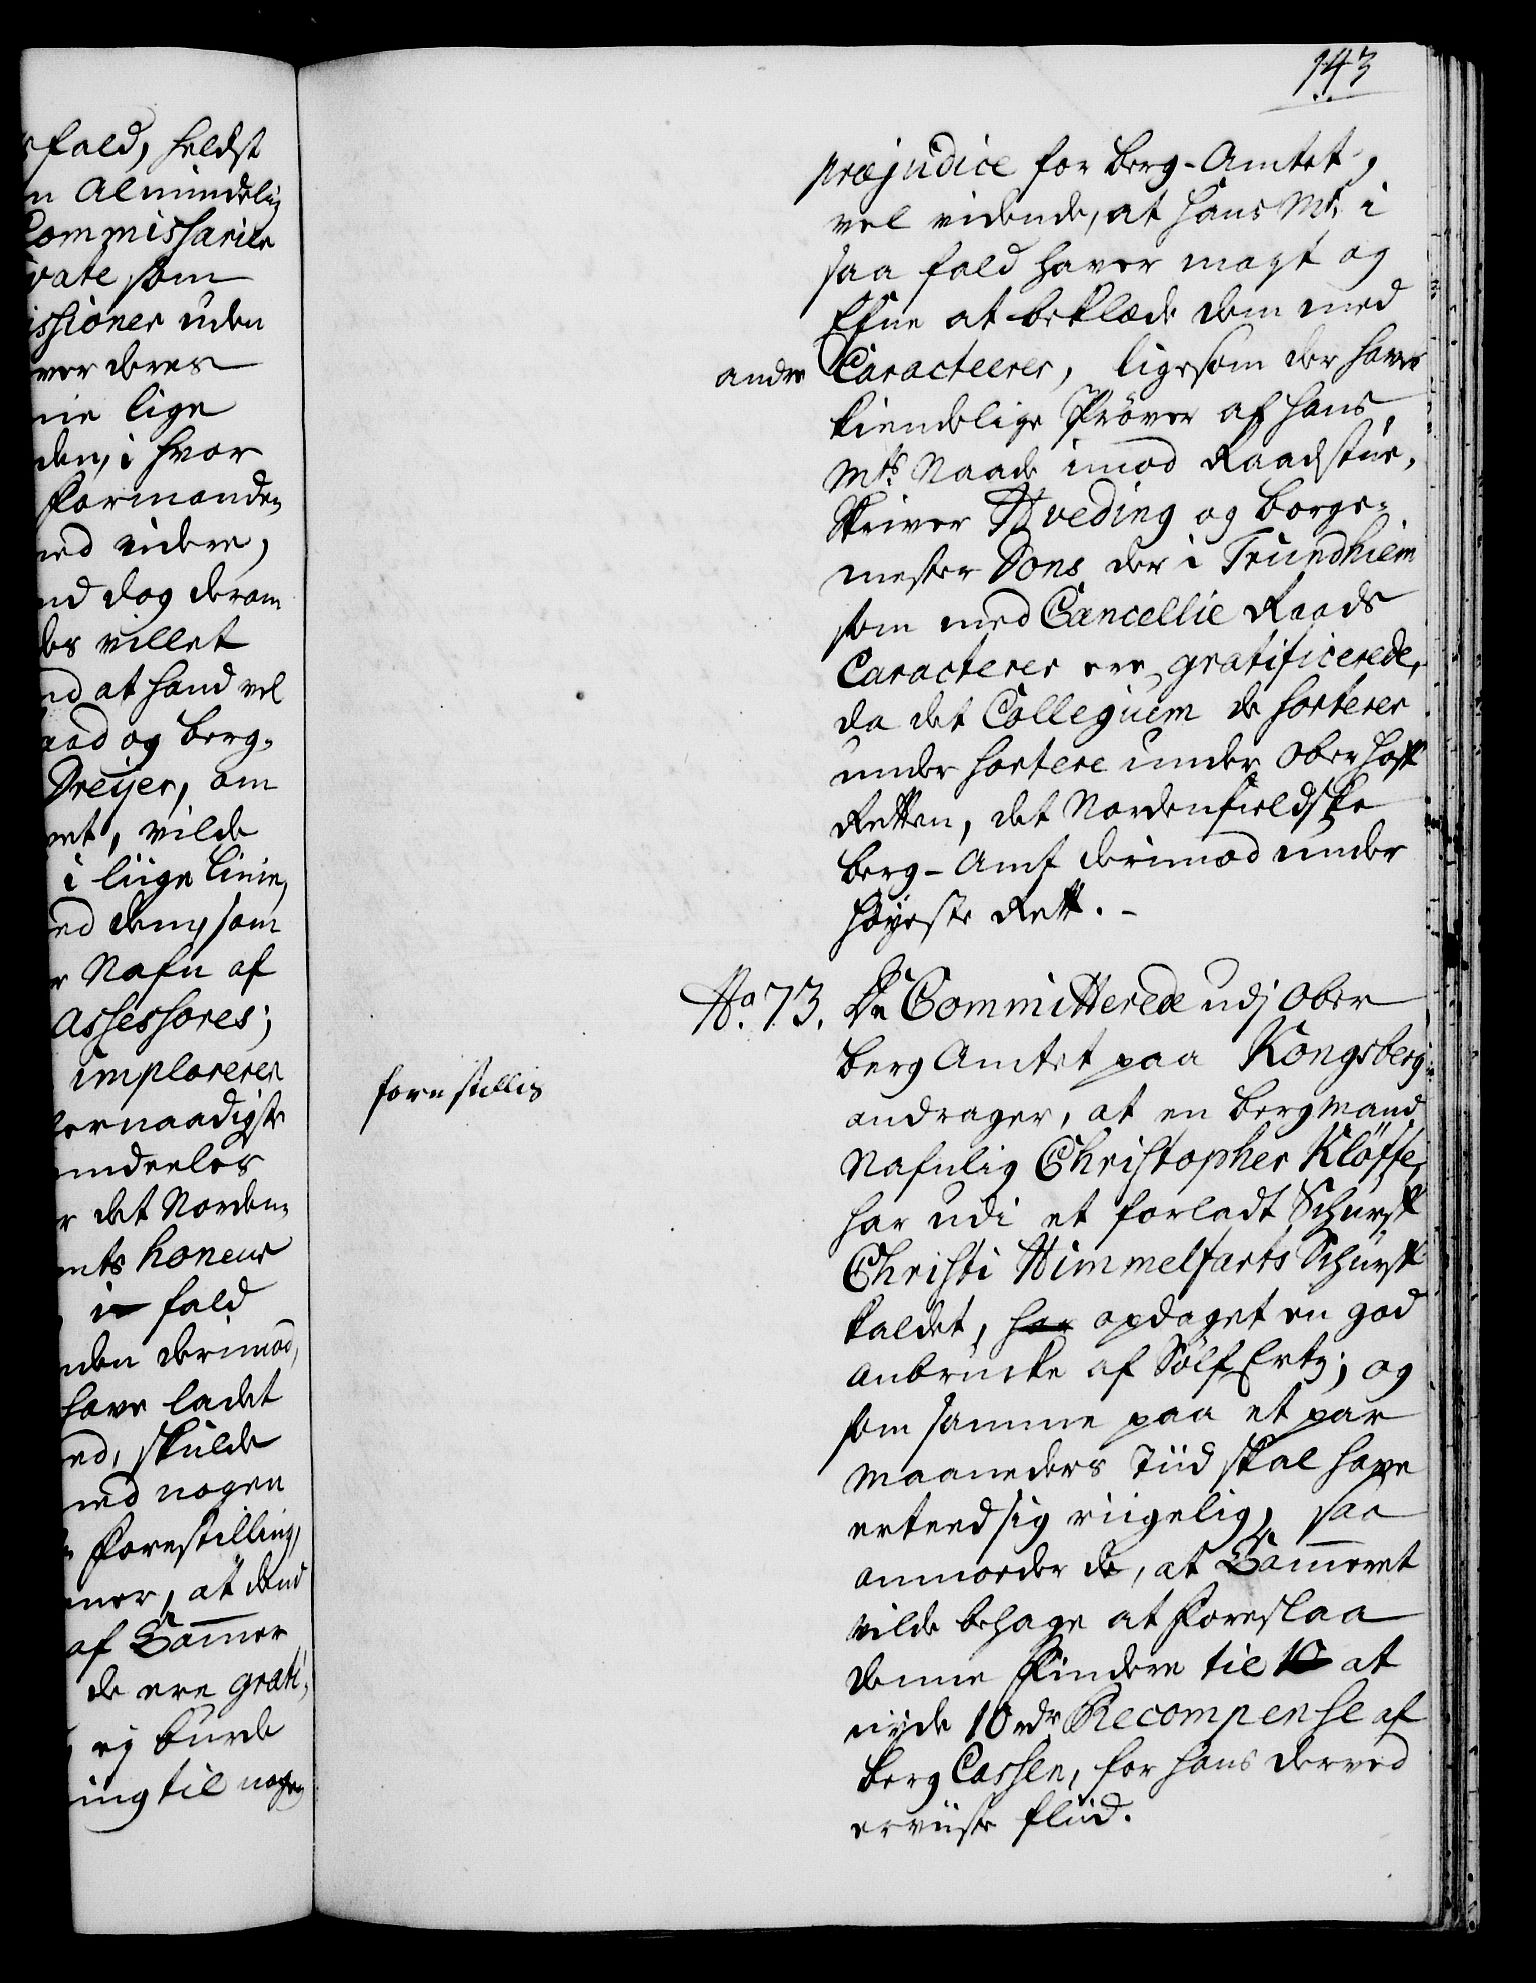 fald, heldst
n Almindelig
Commissarier
vate som
issioner uden
ver deres
nie lige
den, i hvor
Formanden
ned videre,
nd dog derom
des villet
nd at hand vel
aad og Berg-
Dreÿer, om
met, vilde
i liige Linie,
ed dem, som
r Nafn af
Assessores;
implorerer
lernaadigste
r det Norden-
mts honeur
i fald
den derimod,
have ladet
ed, skulde
ned nogen
Forestilling,
ner, at dend
af Cammer
de ere grati-
ej burde
ing til nogen
143
præjudice for Berg-Amtet,
vel vidende, at Hans Mt. i
saa fald haver magt og
Efne at beklæde dem med
andre Caracteerer, ligesom der haves
kiendelige Prøver af Hans
Mts. Naade imod Raadstue-
Skriver Hveding og Borge-
mester Dons der i Trundhiem
som med Cancellie Raads
Caracterer ere gratificerede,
da det Collegium de sorterer
under sortere under Ober Hoff
Retten, det Nordenfieldske
Berg-Amt derimod under
Høyeste Rett. -
No. 73. De Committerede udj Ober
Berg Amtet paa Kongsberg
andrager, at en Bergmand
Nafnlig Christopher Kløffer
har udi et forladt Schurff
Christi Himmelfarts Schurff
kaldet, har opdaget en god
Anbrucke af Sølf Ertz; og
som samme paa et par
Maaneders Tiid skal have
erteed sig riigelig, saa
anmoeder de, at Cammeret
vilde behage at foreslaa
denne Findere til 10 at
nyde 10 rdr Recompense af
Berg Cassen, for hans derved
erviiste fliid.
forestilles